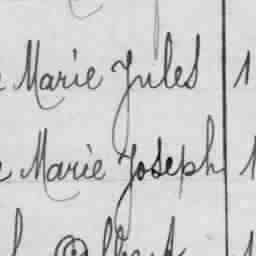 Marie Jules 1
Marie Joseph 1